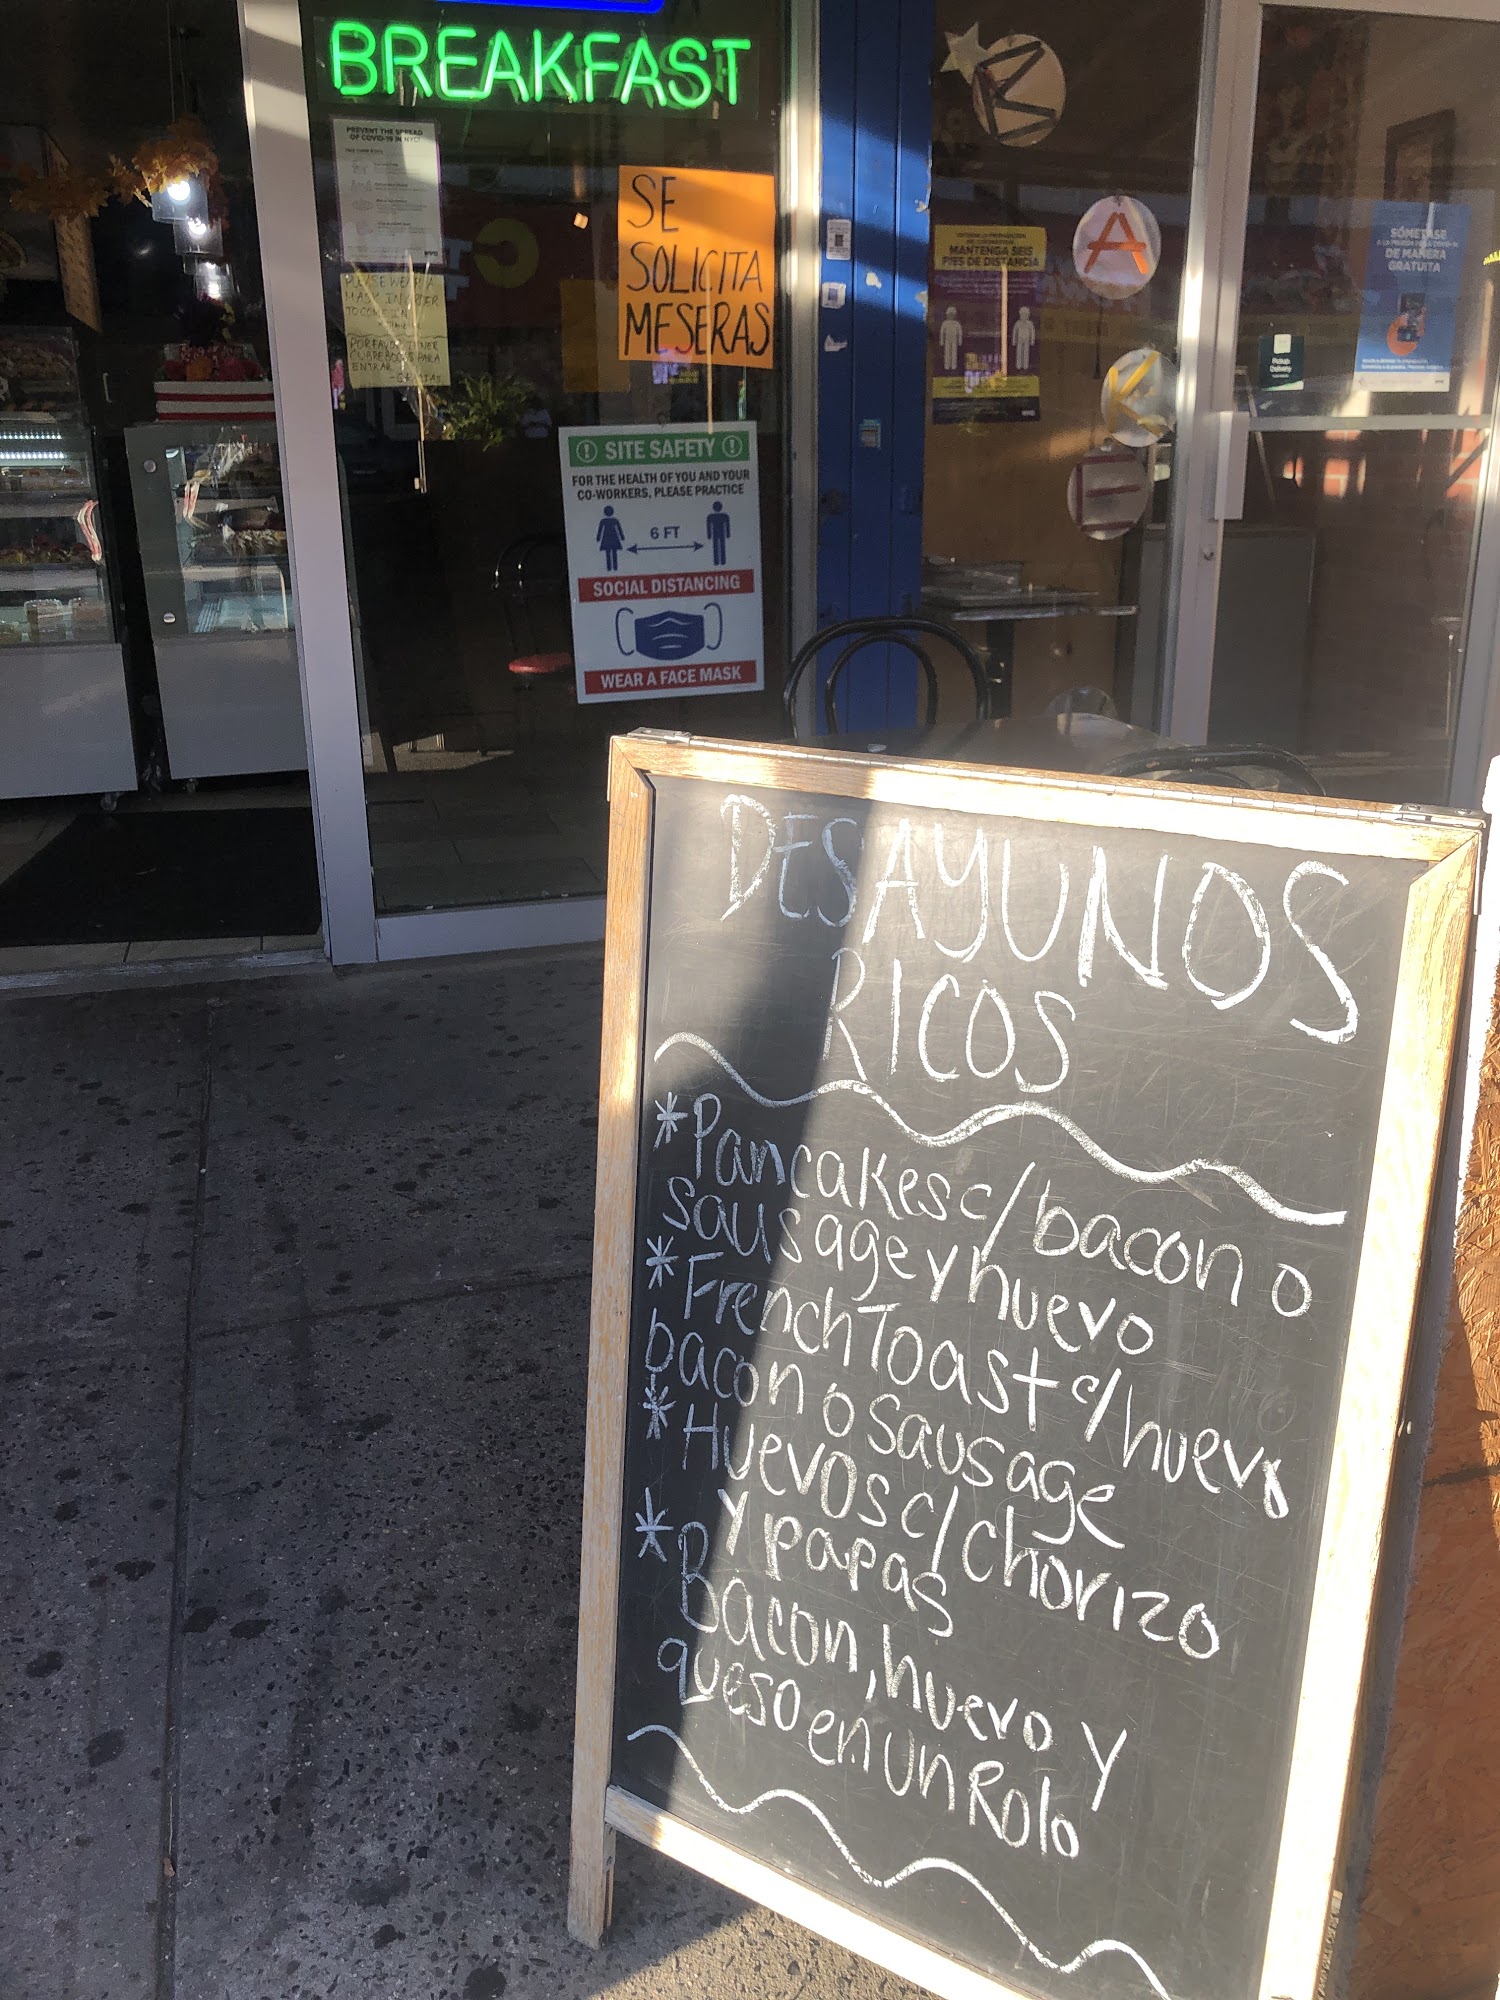 BREAKFAST
PREVENT THE SPREAD
OF COVID-19 IN NYC!
PLEASE WEAR A
MASK IN ORDER
TO COME IN
POR FAVOR TENER
CUBREBOCAS PARA
ENTRAR
SE
SOLICITA
MESERAS
SITE SAFETY
FOR THE HEALTH OF YOU AND YOUR
CO-WORKERS, PLEASE PRACTICE
6 FT
SOCIAL DISTANCING
WEAR A FACE MASK
MANTENGA SEIS
PIES DE DISTANCIA
A
K
E
SÓMETASE
A LA PRUEBA DE COVID-19
DE MANERA
GRATUITA
DESAYUNOS
RICOS
*Pancakes c/bacon o
sausage y huevo
*French Toast c/huevo
bacon o sausage
*Huevos c/chorizo
y papas
*Bacon, huevo y
queso en un Rolo